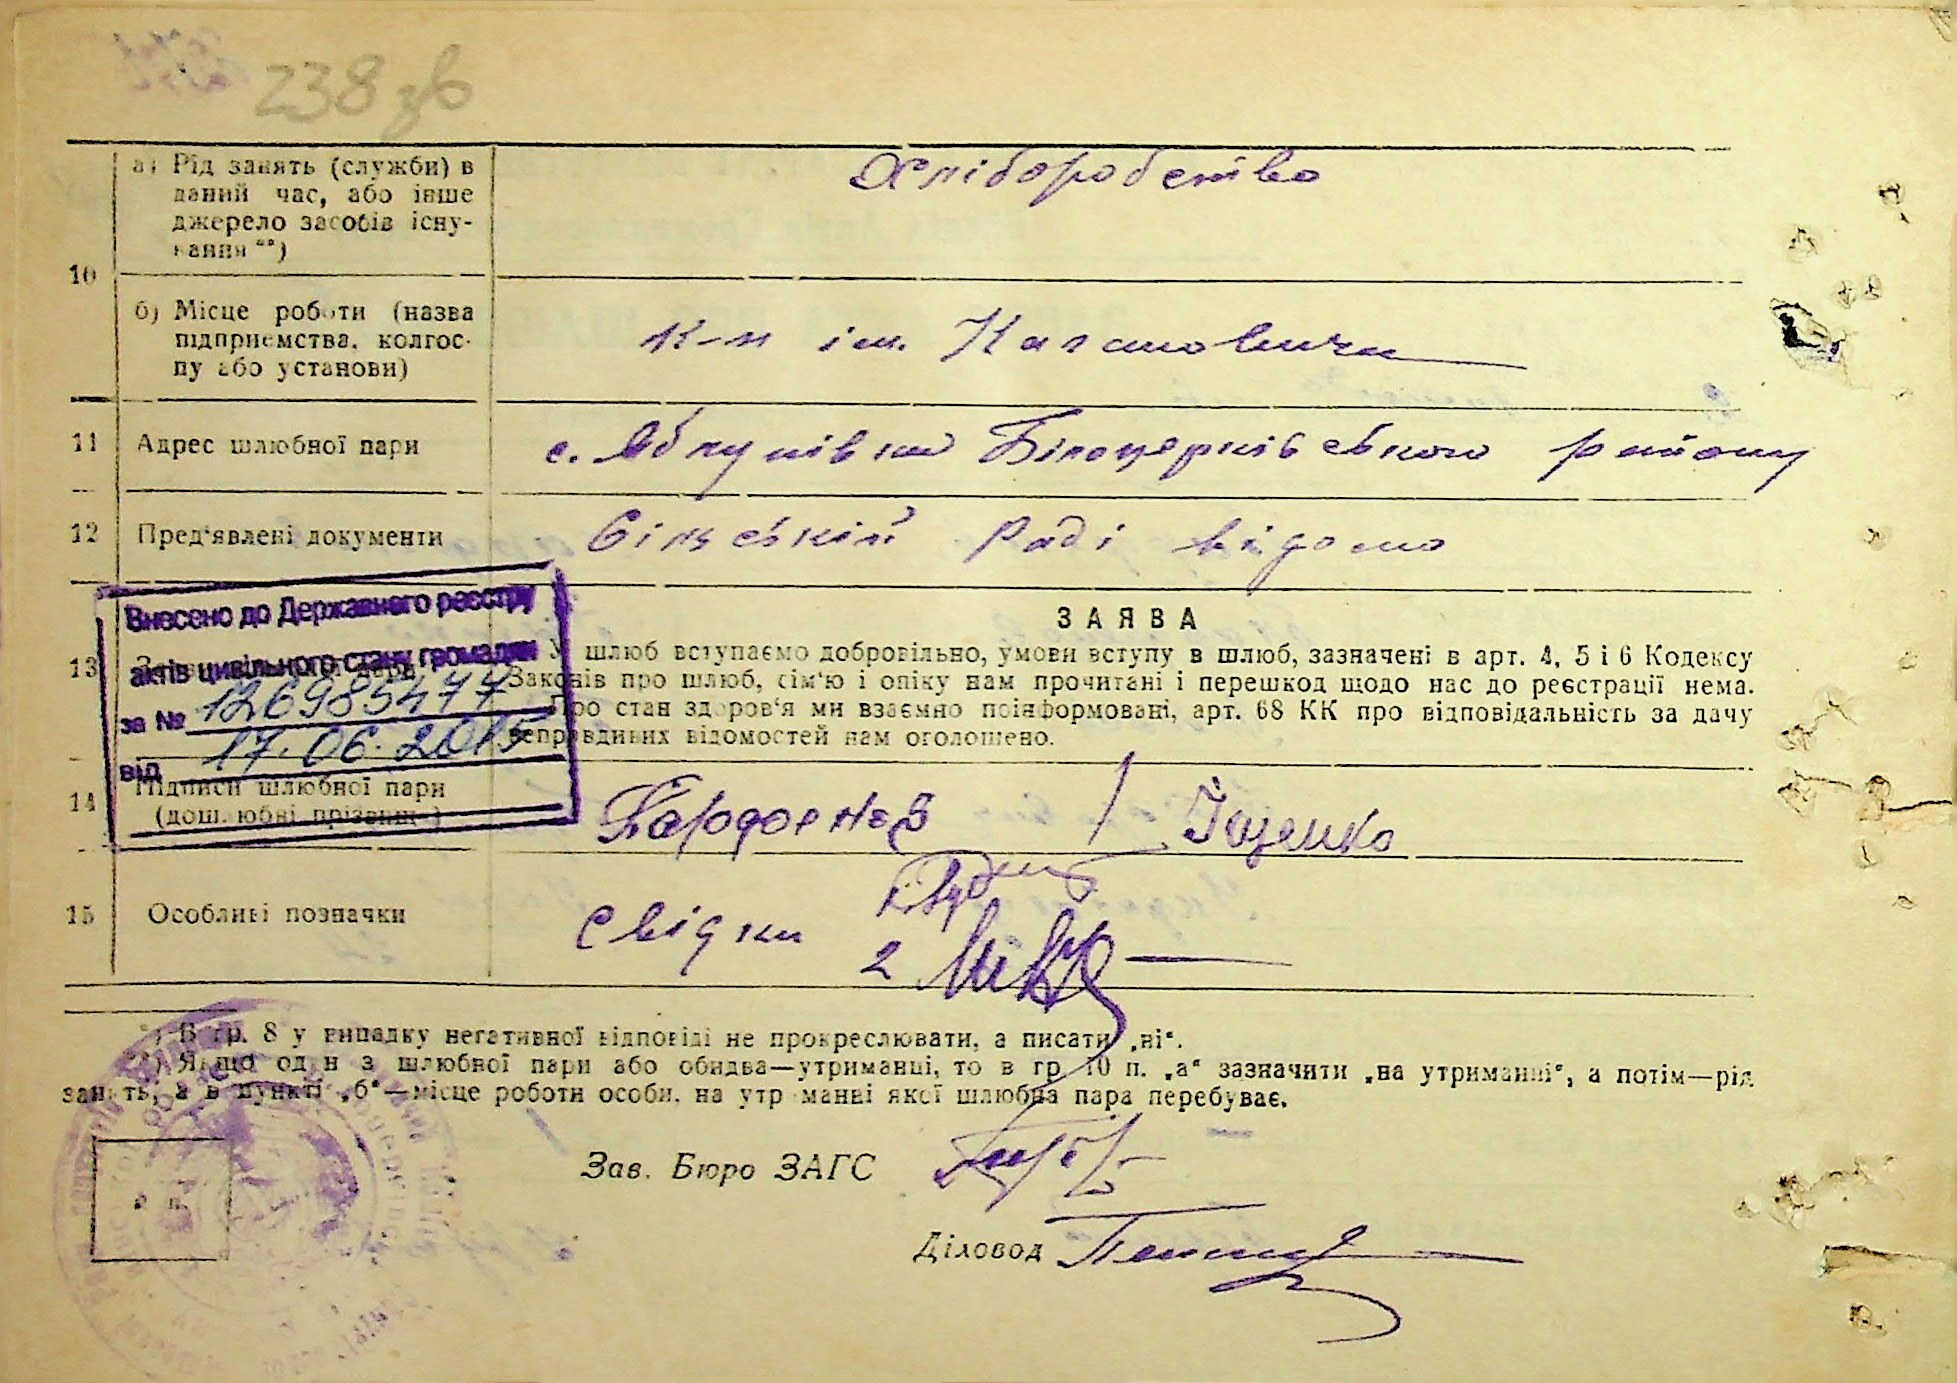 238 зв
а) Рід занять (служби) в
даний час, або інше
джерело засобів існу-
вання **)
Хліборобство
10
б) Місце роботи (назва
підприємства, колгос-
пу або установи)
к-п ім. Кагановича
11 Адрес шлюбної пари
с. Яблунівка Білоцерківського району
12 Пред'явлені документи
Сільській Раді відомо
Внесено до Державного реєстру
актів цивільного стану громадян
за № 126985477
від 17.06.2015
13
ЗАЯВА
У шлюб вступаємо добровільно, умови вступу в шлюб, зазначені в арт. 4, 5 і 6 Кодексу
Законів про шлюб, сім'ю і опіку нам прочитані і перешкод щодо нас до реєстрації нема.
Про стан здоров'я ми взаємно поінформовані, арт. 68 КК про відповідальність за дачу
неправдивих відомостей нам оголошено.
14 Підписи шлюбної пари
(дошлюбні прізвища)
/ Іщенко
15 Особливі позначки
Свідки
2
*) В гр. 8 у випадку негативної відповіді не прокреслювати, а писати „ні“.
**) Якщо один з шлюбної пари або обидва—утриманці, то в гр. 10 п. „а“ зазначити „на утриманні“, а потім—рід
занять, а в пункті „б“—місце роботи особи, на утриманні якої шлюбна пара перебуває.
Зав. Бюро ЗАГС
Діловод